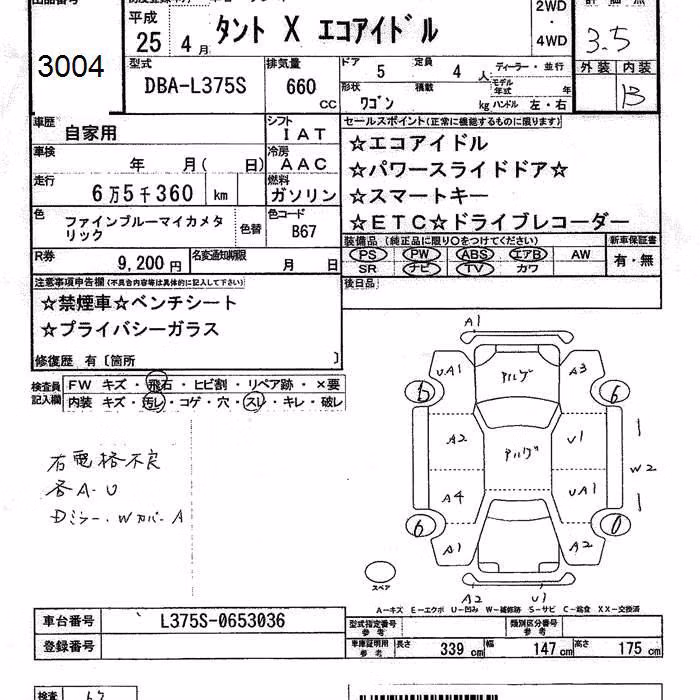 2WD
平成 25 4月 タント X エコアイドル ・
4WD
3.5
3004
型式 DBA-L375S
排気量 660 cc
ドア 5 定員 4 人 ディーラー・並行
形状 ワゴン 積載 kg モデル年式 年
ハンドル 左・右
外装 内装
B
車歴 自家用
シフト IAT
車検 年 月( 日)
冷房 AAC
走行 6万5千360 km
燃料 ガソリン
色 ファインブルーマイカメタリック 色替
色コード B67
R券 9,200円 名変通知期限 月 日
セールスポイント(正常に機能するものに限ります)
☆エコアイドル
☆パワースライドドア☆
☆スマートキー
☆ETC☆ドライブレコーダー
装備品(純正品に限り○をつけてください) 新車保証書
PS PW ABS エアB AW 有・無
SR ナビ TV カワ
後日品
注意事項申告欄(不具合内容等は具体的に記入して下さい)
☆禁煙車☆ベンチシート
☆プライバシーガラス
修復歴 有〔箇所 〕
検査員記入欄
FW キズ・飛石・ヒビ割・リペア跡・×要
内装 キズ・汚レ・コゲ・穴・スレ・キレ・破レ
右電格不良
各A-U
Dミラー、WカバーA
A1
UA1 アルゲ A3
6
A2 アルゲ U1
W2
A4 UA1
6
A1 A2
スペア
A2 U1
A-キズ E-エクボ U-凹み W-補修跡 S-サビ C-腐食 XX-交換済
車台番号 L375S-0653036
登録番号
型式指定番号 参考 類別区分番号 参考
車庫証明用 参考 長さ 339cm 幅 147cm 高さ 175cm
検査